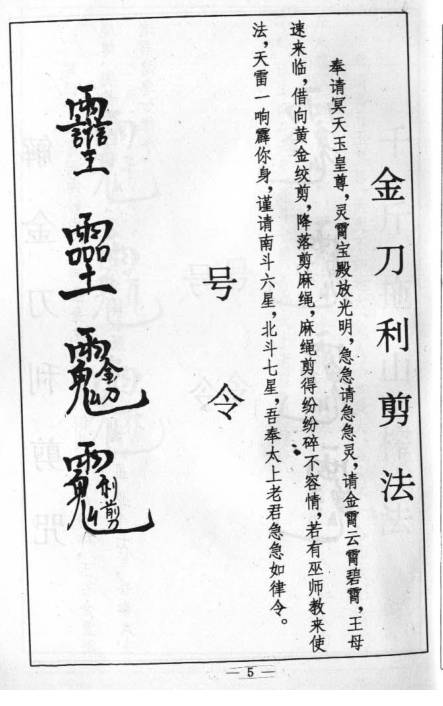 金刀利剪法
奉请冥天玉皇尊，灵霄宝殿放光明，急急请急急灵，请金霄云霄碧霄，王母
速来临，借向黄金绞剪，降落剪麻绳，麻绳剪得纷纷碎不容情，若有巫师教来使
法，天雷一响霹你身，谨请南斗六星，北斗七星，吾奉太上老君急急如律令。
号令
金刀
利剪
—5—